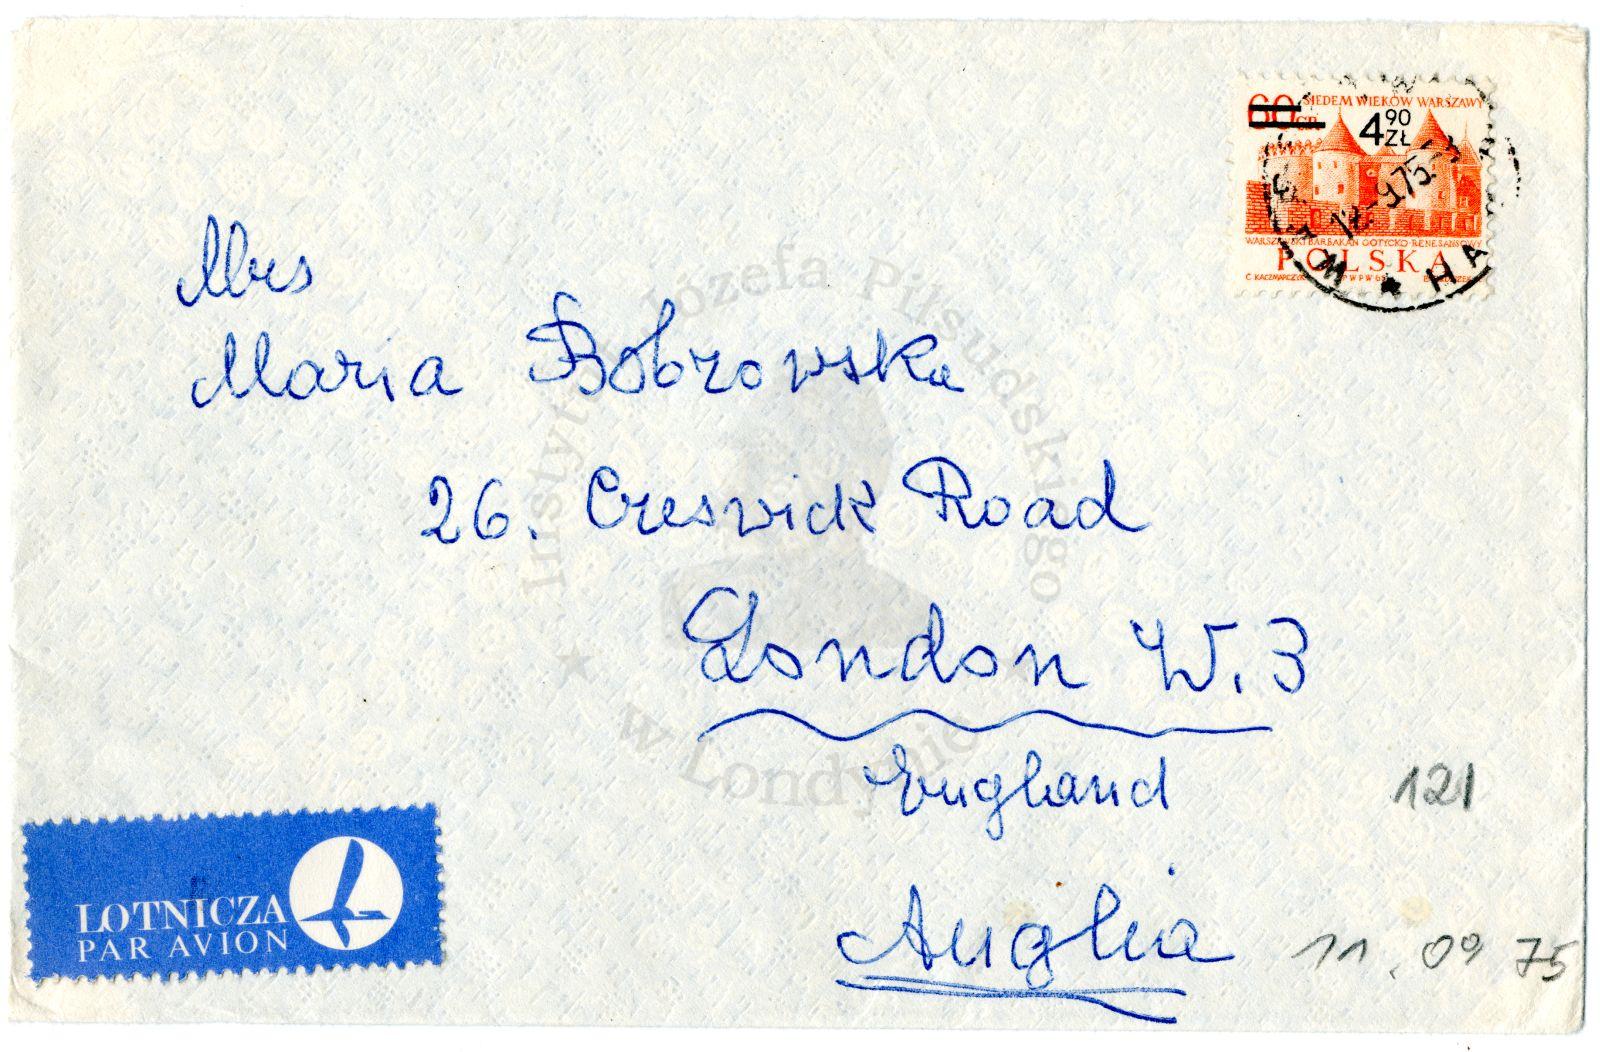 60 GR
SIEDEM WIEKÓW WARSZAWY
4 90 ZŁ
WARSZAWSKI BARBAKAN GOTYCKO-RENESANSOWY
POLSKA
C. KACZMARCZYK
PWPW 65
9.75
Mrs
Maria Bobrowska
26. Creswick Road
London W.3
England
Anglia
121
11.09 75
LOTNICZA
PAR AVION
Instytut Józefa Piłsudskiego
w Londynie